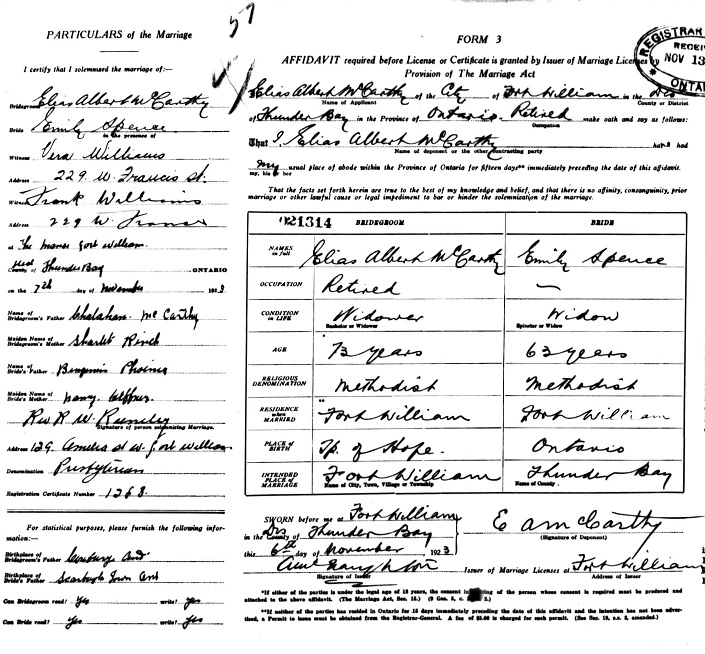 57
PARTICULARS of the Marriage
I certify that I solemnized the marriage of:—
Bridegroom Elias Albert McCarthy
Bride Emily Spence
in the presence of
Witness Vera Williams
Address 229 W. Francis St.
Witness Frank Williams
Address 229 W. Francis
at The manse Fort William
County of Thunder Bay ONTARIO
on the 7th day of November 1923
Name of Bridegroom's Father McCarthy
Maiden Name of Bridegroom's Mother
Name of Bride's Father Benjamin
Maiden Name of Bride's Mother Nancy
Rev R. W.
Signature of person solemnizing Marriage.
Address 129 Amelia St W. Fort William
Denomination Presbyterian
Registration Certificate Number 1268
For statistical purposes, please furnish the following information:—
Birthplace of Bridegroom's Father Ont
Birthplace of Bride's Father Town Ont
Can Bridegroom read? Yes write? Yes
Can Bride read? Yes write? Yes
FORM 3
AFFIDAVIT required before License or Certificate is granted by Issuer of Marriage Licenses by
Provision of The Marriage Act
REGISTRAR
RECEIV
NOV 13
ONTARI
I, Elias Albert McCarthy of the City of Fort William in the Dis
Name of Applicant County or District
of Thunder Bay in the Province of Ontario. Retired make oath and say as follows:
Occupation
That I, Elias Albert McCarthy had
Name of deponent or the other contracting party
my usual place of abode within the Province of Ontario for fifteen days** immediately preceding the date of this affidavit.
my, his or her
That the facts set forth herein are true to the best of my knowledge and belief, and that there is no affinity, consanguinity, prior
marriage or other lawful cause or legal impediment to bar or hinder the solemnization of the marriage.
021314 BRIDEGROOM BRIDE
NAMES in full Elias Albert McCarthy Emily Spence
OCCUPATION Retired —
CONDITION IN LIFE Widower Widow
Bachelor or Widower Spinster or Widow
AGE 73 years 63 years
RELIGIOUS DENOMINATION Methodist Methodist
RESIDENCE when MARRIED Fort William Fort William
PLACE OF BIRTH Tp. of Hope. Ontario
INTENDED PLACE OF MARRIAGE Fort William Thunder Bay
Name of City, Town, Village or Township Name of County.
SWORN before me at Fort William
in the County of Dis Thunder Bay
this 6th day of November 1923
E A McCarthy
(Signature of Deponent)
Signature of Issuer
Issuer of Marriage Licenses at Fort William
Address of Issuer
*If either of the parties is under the legal age of 18 years, the consent in of the person whose consent is required must be produced and
attached to the above affidavit. (The Marriage Act, Sec. 15.)
**If neither of the parties has resided in Ontario for 15 days immediately preceding the date of this affidavit and the intention has not been adver-
tised, a Permit to issue must be obtained from the Registrar-General. A fee of $5.00 is charged for each permit. (See Sec. 19, s.s. 3, amended.)